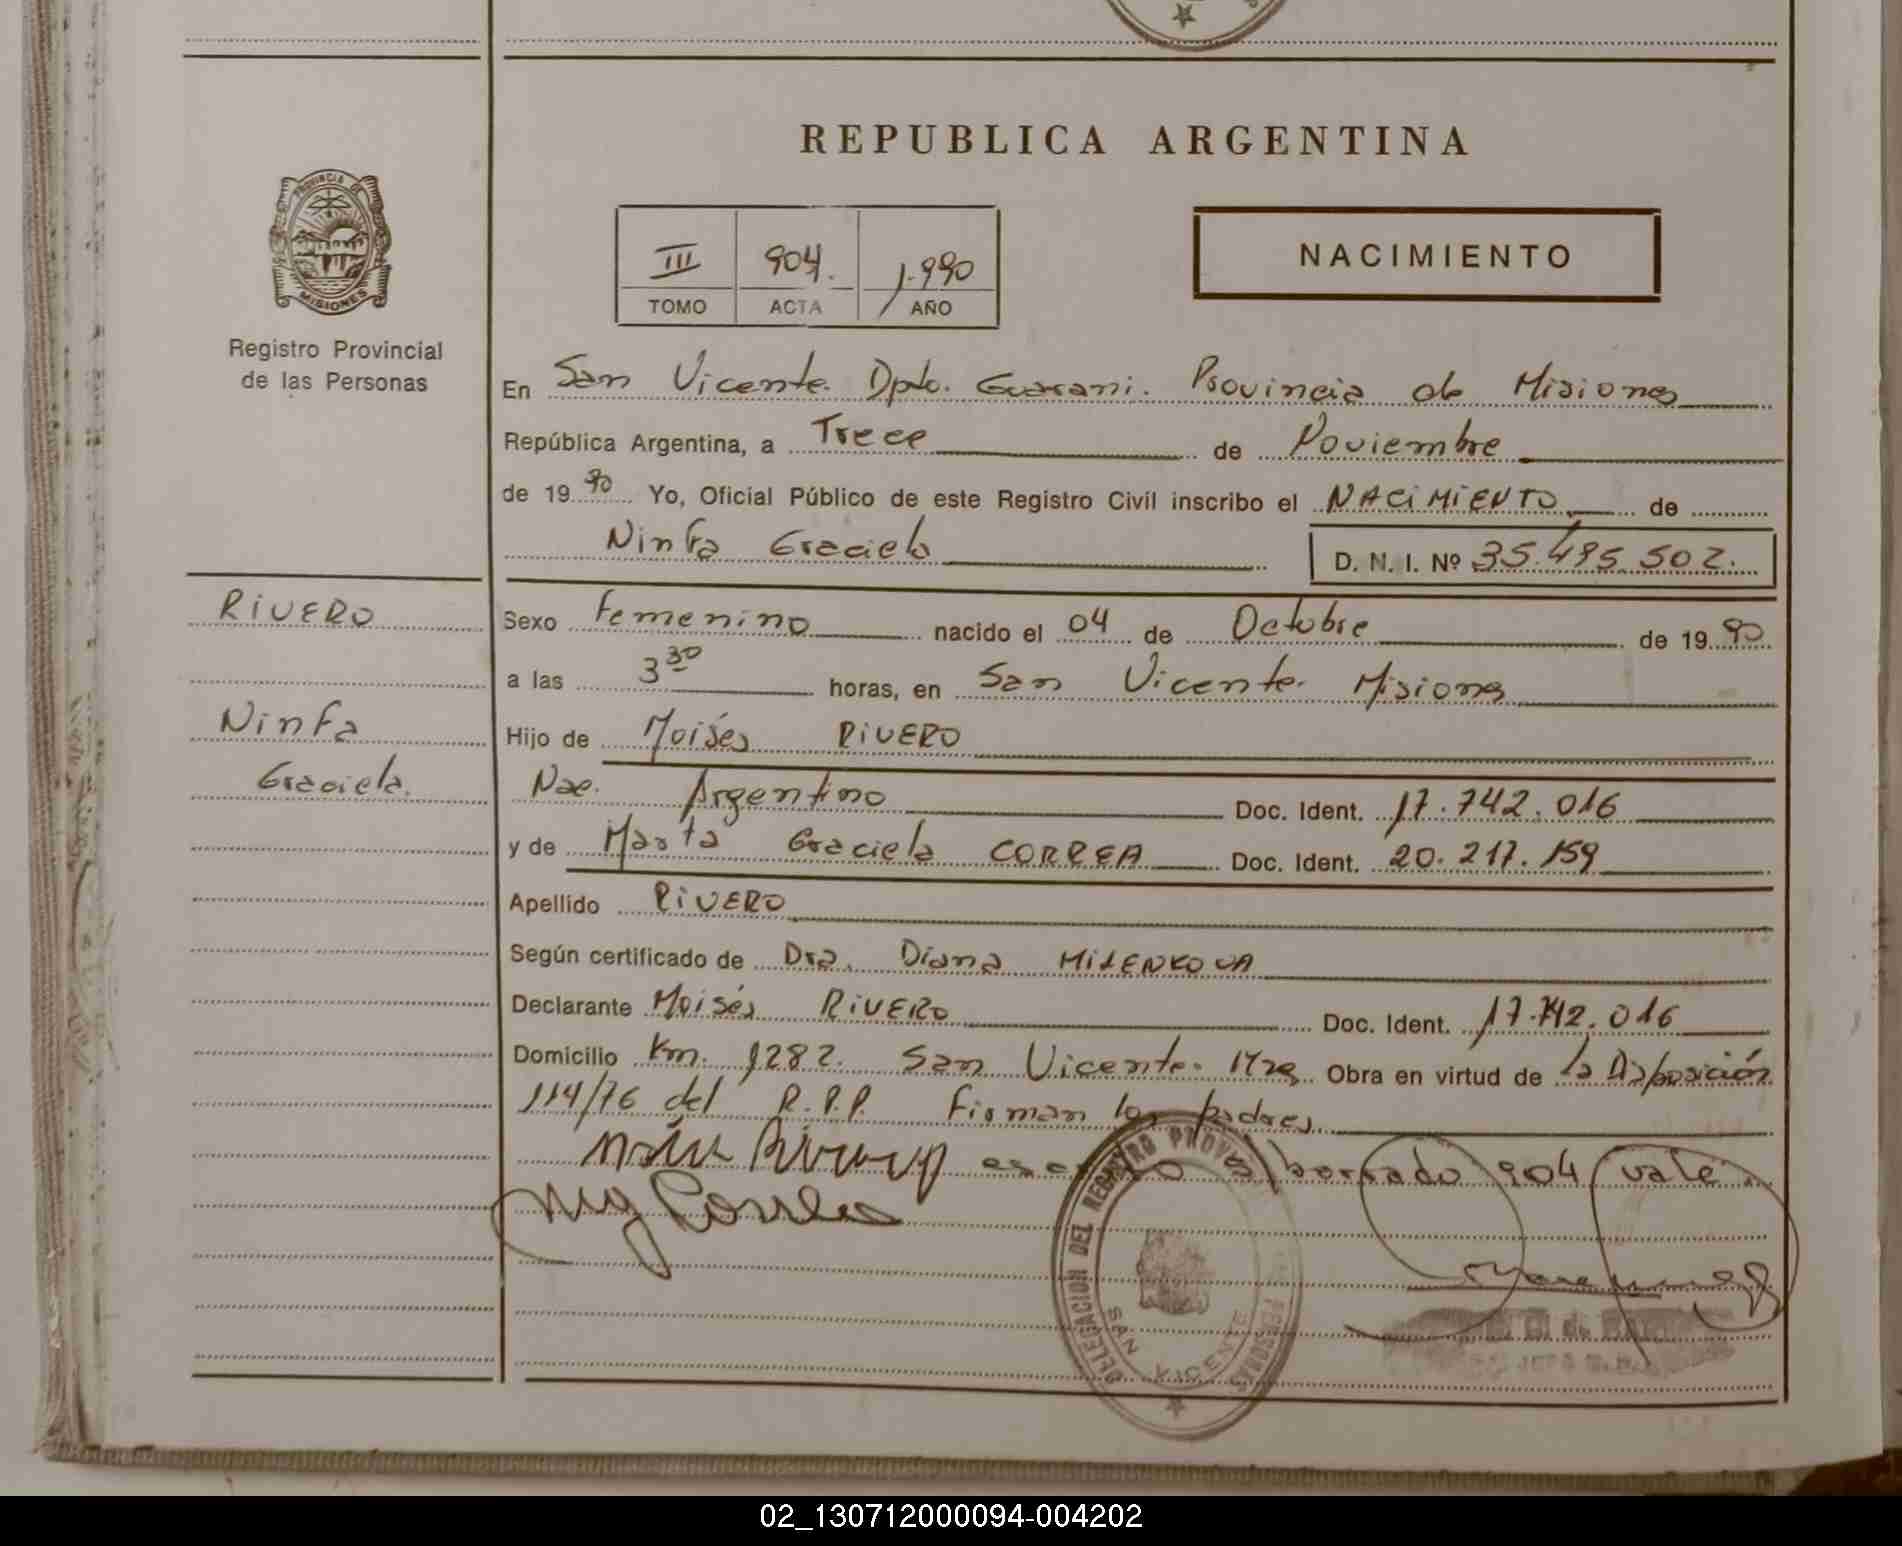 REPUBLICA ARGENTINA
PROVINCIA DE
MISIONES
Registro Provincial
de las Personas
III 904. 1.990
TOMO ACTA AÑO
NACIMIENTO
En San Vicente. Dpto. Guarani. Provincia de Misiones
República Argentina, a Trece de Noviembre
de 1990 Yo, Oficial Público de este Registro Civil inscribo el NACIMIENTO de
Ninfa Graciela D. N. I. Nº 35.495.502.
RIVERO
Ninfa
Graciela.
Sexo Femenino nacido el 04 de Octubre de 1990
a las 3 30 horas, en San Vicente. Misiones
Hijo de Moisés RIVERO
Nac. Argentino Doc. Ident. 17.742.016
y de Marta Graciela CORREA Doc. Ident. 20.217.159
Apellido RIVERO
Según certificado de Dra. Diana MILENKOVA
Declarante Moisés RIVERO Doc. Ident. 17.742.016
Domicilio Km. 1282. San Vicente. Mnes. Obra en virtud de la Disposición
114/76 del R.P.P. Firman los padres
borrado 904 vale.
DELEGACION DEL REGISTRO PROV
PERSONAS
SAN VICENTE
02_130712000094-004202